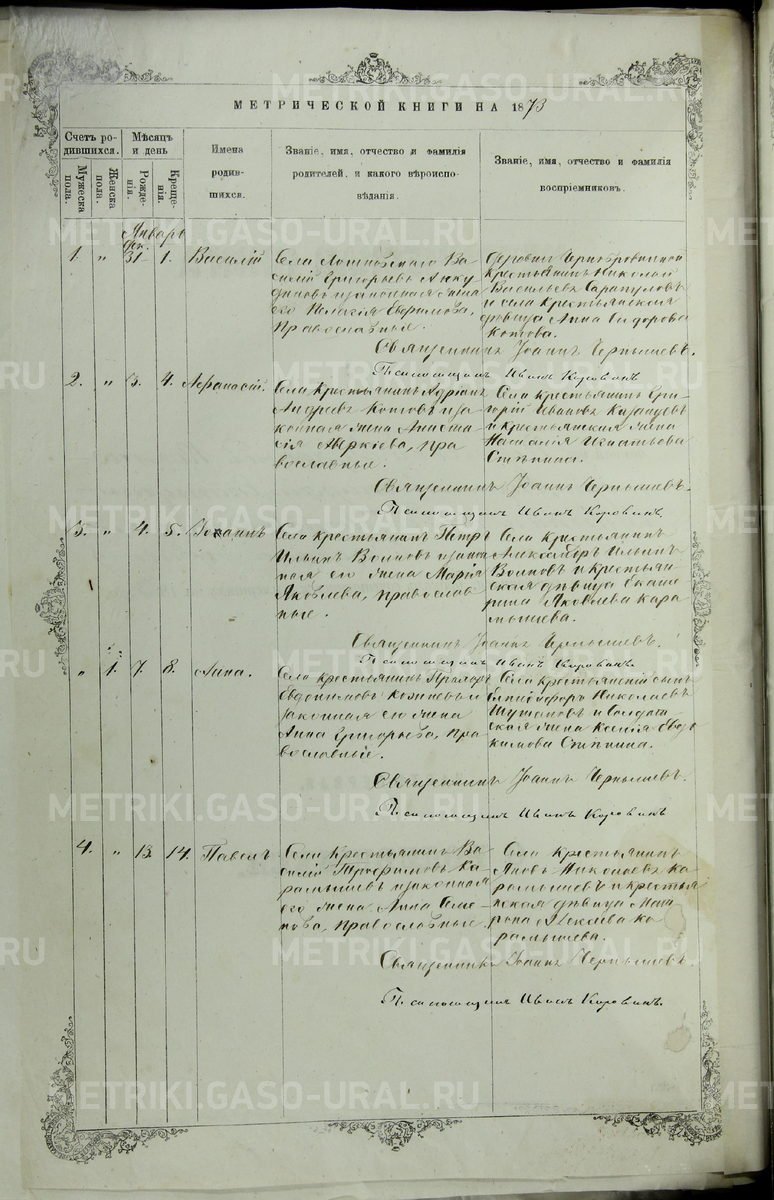 МЕТРИЧЕСКОЙ КНИГИ НА 1873
Счетъ родившихся.
Мужеска пола.
Женска пола.
Мѣсяцъ и день
Рожденія.
Крещенія.
Имена родившихся.
Званіе, имя, отчество и фамилія родителей, и какого вѣроисповѣданія.
Званіе, имя, отчество и фамилія воспріемниковъ.
Январь
дек.
1. " 31 1. Василій
Села
Василій Григорьевъ
законная жена
его Пелагія Евфимова,
Православные.
деревни
крестьянинъ Николай
Васильевъ Сарапуловъ
и села крестьянская
дѣвица Анна Сидорова
Котова.
Священникъ Іоаннъ Чернышевъ.
Псаломщикъ Иванъ Коровинъ
2. " 3. 4. Афанасій.
Села крестьянинъ Адріанъ
Андреевъ Котовъ и за
конная жена Анаста
сія, пра
вославные.
Села крестьянинъ Гри
горій Ивановъ Казанцевъ
и крестьянская жена
Наталія Игнатьева
Стѣпина.
Священникъ Іоаннъ Чернышевъ.
Псаломщикъ Иванъ Коровинъ
3. " 4. 5. Іоаннъ
Села крестьянинъ Петръ
Ильинъ Волковъ и закон
ная его жена Марія
Яковлева, православ
ные.
Села крестьянинъ
Александръ Ильинъ
Волковъ и крестьян
ская дѣвица Екате
рина Яковлева Кара
мышева.
Священникъ Іоаннъ Чернышевъ.
Псаломщикъ Иванъ Коровинъ.
" 1. 7. 8. Анна.
Села крестьянинъ
Евдокимовъ и
законная его жена
Анна Григорьева, пра
вославные.
Села крестьянскій сынъ
Никифоръ Николаевъ
и Солдат
ская жена Ксенія Евдо
кимова Стѣпина.
Священникъ Іоаннъ Чернышевъ.
Псаломщикъ Иванъ Коровинъ
4. " 13. 14. Павелъ
Села Крестьянинъ Ва
силій Трофимовъ Ка
рамышевъ и законная
его жена Анна Семе
нова, православные.
Села крестьянинъ
Яковъ Николаевъ Ка
рамышевъ и крестьян
ская дѣвица Мат
рона Алексѣева Ка
рамышева.
Священникъ Іоаннъ Чернышевъ.
Псаломщикъ Иванъ Коровинъ.
METRIKI.GASO-URAL.RU